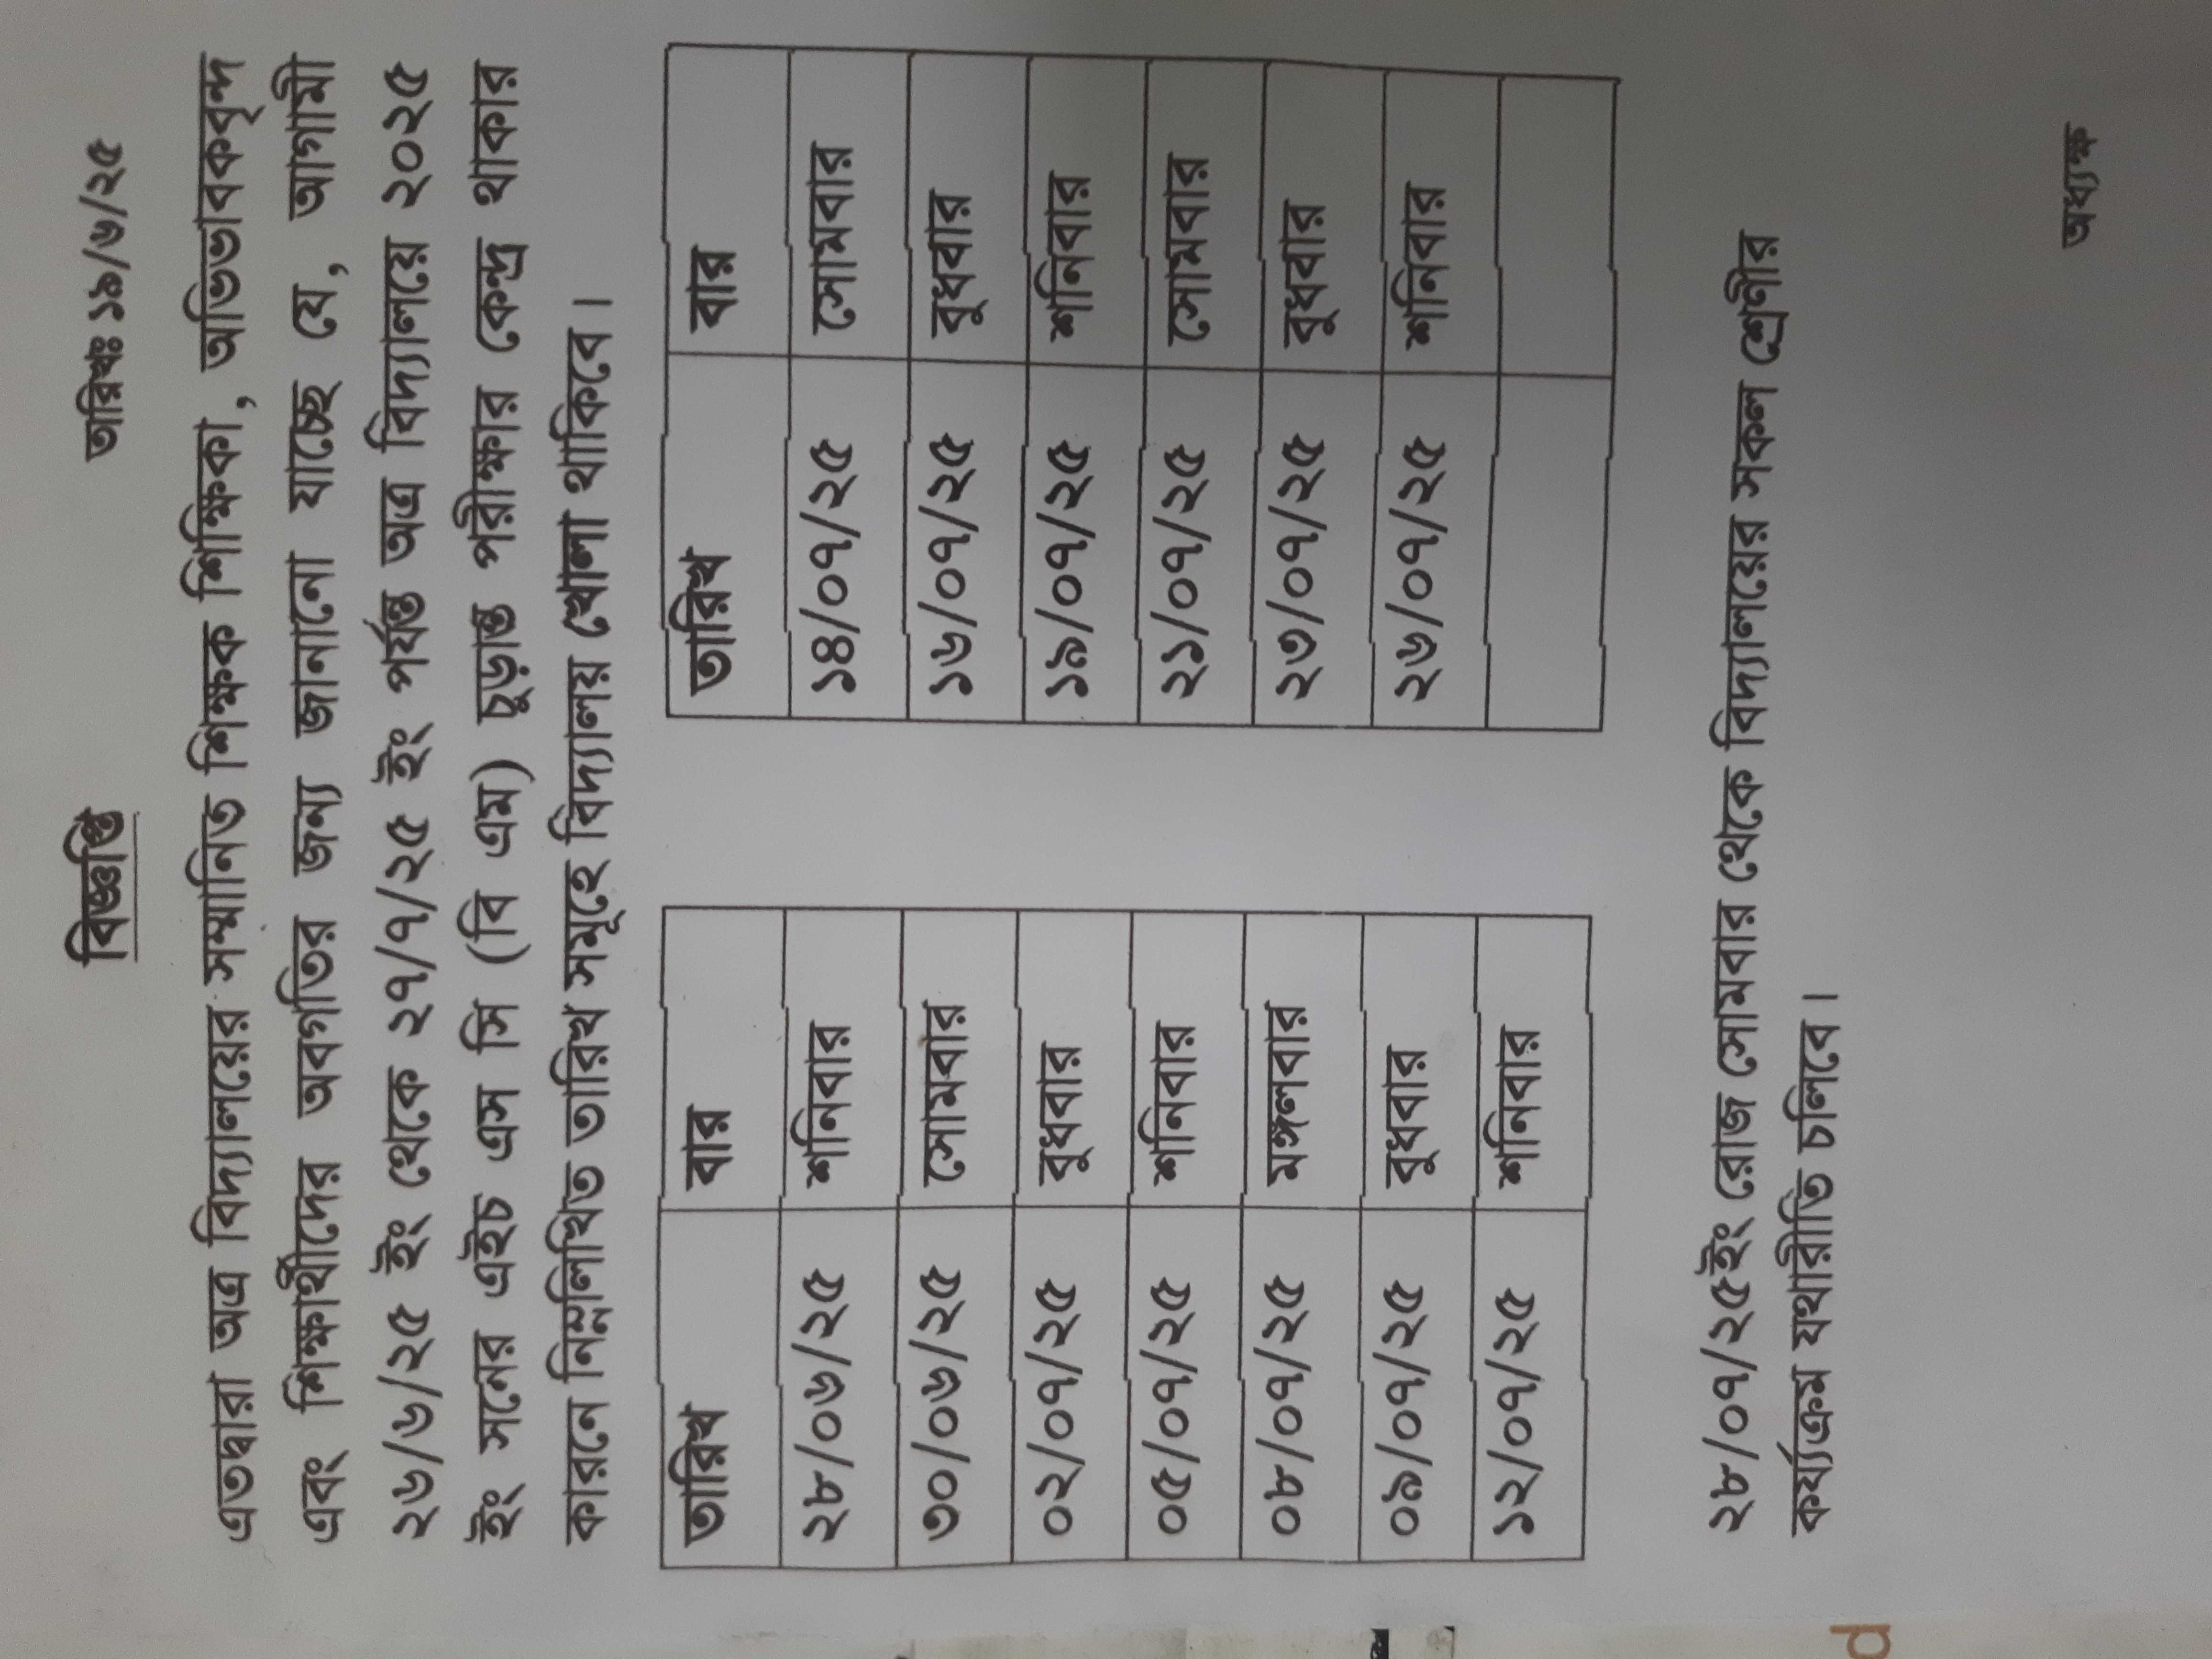 বিজ্ঞপ্তি
তারিখঃ ১৯/৬/২৫
এতদ্বারা অত্র বিদ্যালয়ের সম্মানিত শিক্ষক শিক্ষিকা, অভিভাবকবৃন্দ
এবং শিক্ষার্থীদের অবগতির জন্য জানানো যাচ্ছে যে, আগামী
২৬/৬/২৫ ইং থেকে ২৭/৭/২৫ ইং পর্যন্ত অত্র বিদ্যালয়ে ২০২৫
ইং সনের এইচ এস সি (বি এম) চুড়ান্ত পরীক্ষার কেন্দ্র থাকার
কারনে নিম্নলিখিত তারিখ সমূহে বিদ্যালয় খোলা থাকিবে।
তারিখ বার
২৮/০৬/২৫ শনিবার
৩০/০৬/২৫ সোমবার
০২/০৭/২৫ বুধবার
০৫/০৭/২৫ শনিবার
০৮/০৭/২৫ মঙ্গলবার
০৯/০৭/২৫ বুধবার
১২/০৭/২৫ শনিবার
তারিখ বার
১৪/০৭/২৫ সোমবার
১৬/০৭/২৫ বুধবার
১৯/০৭/২৫ শনিবার
২১/০৭/২৫ সোমবার
২৩/০৭/২৫ বুধবার
২৬/০৭/২৫ শনিবার
২৮/০৭/২৫ইং রোজ সোমবার থেকে বিদ্যালয়ের সকল শ্রেণীর
কর্য্যক্রম যথারীতি চলিবে।
অধ্যক্ষ